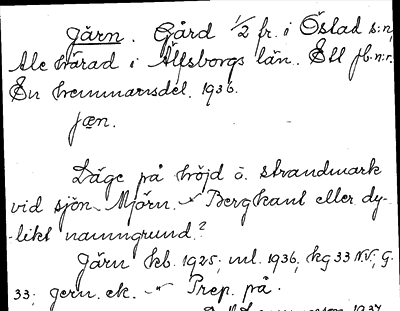 Järn. Gård 1/2 fr. i Östad s:n,
Ale härad i Älfsborgs län. Ett jb.n:r.
En hemmansdel. 1936.
jæn.
Läge på höjd o. strandmark
vid sjön Mjörn. -"- Bergkant eller dy-
-likt namngrund?
Järn kb. 1925; ml. 1936, kg 33 N.V.; G.
33; jern. ek. -"- Prep. på.
1937